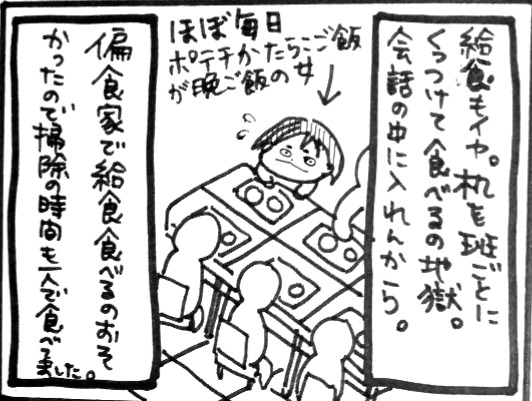 給食もイヤ。机を班ごとに
くっつけて食べるの地獄。
会話の中に入れんから。
ほぼ毎日
ポテチかたらこご飯
が晩ご飯の女
偏食家で給食食べるのおそ
かったので掃除の時間も一人で食べてました。